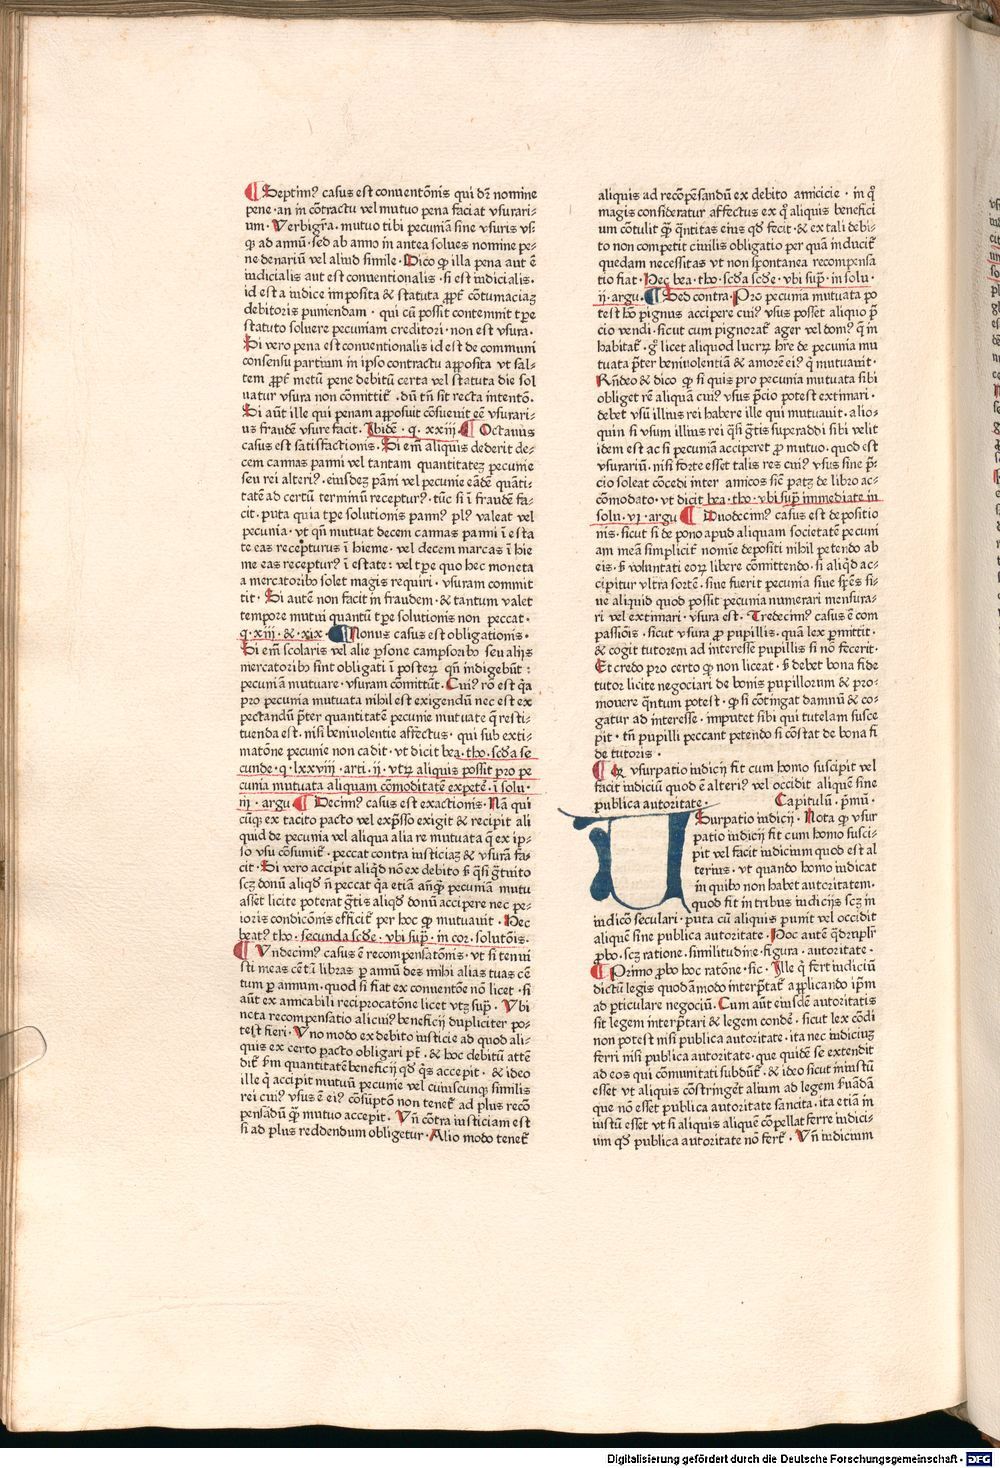 ¶ Septimꝰ casus est conuentōnis qui dr̄ nomine
pene · an in cōtractu vel mutuo pena faciat vsurari-
um · Verbigr̄a · mutuo tibi pecuniā sine vsuris vsꝫ
qꝫ ad annū · sed ab anno in antea solues nomine pe-
ne denariū vel aliud simile · Dico ꝙ illa pena aut ē
iudicialis aut est conuentionalis · si est iudicialis ·
id est a iudice imposita & statuta ꝓpt̄ cōtumaciaꝫ
debitoris puniendam · qui cū possit contemnit tꝑe
statuto soluere pecuniam creditori · non est vsura ·
Si vero pena est conuentionalis id est de communi
consensu partium in ipso contractu apposita vt sal-
tem ꝓpt̄ metū pene debitū certa vel statuta die sol
uatur vsura non cōmittit᷑ · dū tn̄ sit recta intentō ·
Si aūt ille qui penam apposuit cōsueuit eē vsurari-
us fraudē vsure facit · Ibidē · q · xxiij · ¶ Octauus
casus est satisfactionis · Si em̄ aliquis dederit de-
cem cannas panni vel tantam quantitatez pecunie
seu rei alteriꝰ · eiusdeꝫ pāni vel pecunie eādē quāti-
tatē ad certū terminū recepturꝰ · tūc si ī fraudē fa-
cit · puta quia tꝑe solutionis pannꝰ plꝰ valeat vel
pecunia · vt qn̄ mutuat decem cannas panni ī esta
te eas recepturus ī hieme · vel decem marcas ī hie
me eas recepturꝰ ī estate : vel tꝑe quo hec moneta
a mercatoribꝰ solet magis requiri · vsuram commit
tit · Si autē non facit in fraudem · & tantum valet
tempore mutui quantū tꝑe solutionis non peccat ·
q · xiij · & · xix · ¶ Nonus casus est obligationis ·
Si em̄ scolaris vel alie ꝑsone campsoribꝰ seu alijs
mercatoribꝰ sint obligati ī posteꝝ qn̄ indigebūt :
pecuniā mutuare · vsuram cōmittūt · Cuiꝰ rō est qꝛa
pro pecunia mutuata nihil est exigendū nec est ex
pectandū p̄ter quantitatē pecunie mutuate q̄ resti-
tuenda est · nisi beniuolentie affectus · qui sub exti-
matōne pecunie non cadit · vt dicit bea · tho · scd̄a se
cunde · q · lxxviij · arti · ij · vtꝝ aliquis possit pro pe
cunia mutuata aliquam cōmoditatē expetē · ī solu ·
iij · argu ¶ Decimꝰ casus est exactionis · Nā qui
cūqꝫ ex tacito pacto vel exp̄sso exigit & recipit ali
quid de pecunia vel aliqua alia re mutuata q̄ ex ip-
so vsu cōsumit᷑ · peccat contra iusticiaꝫ & vsurā fa-
cit · Si vero accipit aliqd̄ nō ex debito s̄ qſi gr̄tuito
scꝫ donū aliqd̄ n̄ peccat qꝛa etiā an̄qꝫ pecuniā mutu
asset licite poterat gr̄tis aliqd̄ donū accipere nec pe-
ioris condicōnis efficit᷑ per hoc ꝙ mutuauit · Hec
beatꝰ tho · secunda scd̄e · vbi supꝛ · in cor · solutōis ·
¶ Vndecimꝰ casus ē recompensatōnis · vt si tenui
sti meas cētū libras ꝑ annū des mihi alias tuas cē
tum ꝑ annum · quod si fiat ex conuentōe nō licet · si
aūt ex amicabili reciprocatōne licet vtꝫ supꝛ · Vbi
nota recompensatio alicuiꝰ beneficij dupliciter po-
test fieri · Vno modo ex debito iusticie ad quod ali-
quis ex certo pacto obligari pt̄ · & hoc debitū attē
dit᷑ ẜm quantitatē beneficij qd̄ q̄s accepit · & ideo
ille q̄ accipit mutuū pecunie vel cuiuscunqꝫ similis
rei cuiꝰ vsus ē eiꝰ cōsūptō non tenet᷑ ad plus recō
pensādū qꝫ mutuo accepit · Vn̄ cōtra iusticiam est
si ad plus reddendum obligetur · Alio modo tenet᷑
aliquis ad recōpēsandū ex debito amicicie · in qͦ
magis consideratur affectus ex qͦ aliquis benefici
um cōtulit qꝫ q̄ntitas eius qd̄ fecit · & ex tali debi-
to non competit ciuilis obligatio per quā inducit᷑
quedam necessitas vt non spontanea recompensa
tio fiat · Hec bea · tho · scd̄a scd̄e · vbi supꝛ · in solu ·
ij · argu · ¶ Sed contra · Pro pecunia mutuata po
test hō pignus accipere cuiꝰ vsus posset aliquo p̄
cio vendi · sicut cum pignorat᷑ ager vel domꝰ q̄ in
habitat᷑ · gͦ licet aliquod lucꝝ hr̄e de pecunia mu
tuata p̄ter beniuolentiā & amorē eiꝰ q̄ mutuauit ·
Rn̄deo & dico ꝙ si quis pro pecunia mutuata sibi
obliget rē aliquā cuiꝰ vsus p̄cio potest extimari ·
debet vsū illius rei habere ille qui mutuauit · alio-
quin si vsum illius rei qſi gr̄tis superaddi sibi velit
idem est ac si pecuniā acciperet ꝓ mutuo · quod est
vsurariū · nisi forte esset talis res cuiꝰ vsus sine p̄-
cio soleat cōcedi inter amicos sic̄ patꝫ de libro ac-
cōmodato · vt dicit bea · tho · vbi supꝛ immediate in
solu · vi · argu ¶ Duodecimꝰ casus est depositio
nis · sicut si depono apud aliquam societatē pecuni
am meā simplicit᷑ nomīe depositi nihil petendo ab
eis · s̄ voluntati eoꝝ libere cōmittendo · si aliqd̄ ac-
cipitur vltra sortē · siue fuerit pecunia siue sp̄es si-
ue aliquid quod possit pecunia numerari mensura-
ri vel extimari · vsura est · Tredecimꝰ casus ē com
passiōis · sicut vsura ꝓ pupillis · quā lex ꝑmittit ·
& cogit tutorem ad interesse pupillis si nō fecerit ·
Et credo pro certo ꝙ non liceat · s̄ debet bona fide
tutor licite negociari de bonis pupillorum & pro-
mouere q̄ntum potest · ꝙ si cōtingat damnū & co-
gatur ad interesse · imputet sibi qui tutelam susce
pit · tn̄ pupilli peccant petendo si cōstat de bona fi
de tutoris ·
¶ Qꝛ vsurpatio iudicij fit cum homo suscipit vel
facit iudiciū quod ē alteriꝰ vel occidit aliquē sine
publica autoritate · Capitulū · pmū ·
Usurpatio iudicij · Nota ꝙ vsur
patio iudicij fit cum homo susci-
pit vel facit iudicium quod est al
terius · vt quando homo iudicat
in quibꝰ non habet autoritatem ·
quod fit in tribus iudicijs scꝫ in
iudicō seculari · puta cū aliquis punit vel occidit
aliquē sine publica autoritate · Hoc autē q̄drupl᷑r
ꝓbo · scꝫ ratione · similitudine · figura · autoritate ·
¶ Primo ꝓbo hoc ratōne · sic · Ille q̄ fert iudiciū
dictū legis quodāmodo interp̄tat᷑ applicando ip̄m
ad ꝑticulare negociū · Cum aūt eiusdē autoritatis
sit legem interp̄tari & legem condē · sicut lex cōdi
non potest nisi publica autoritate · ita nec iudiciuꝫ
ferri nisi publica autoritate · que quidē se extendit
ad eos qui cōmunitati subdūt᷑ · & ideo sicut iniustū
esset vt aliquis cōstringēt alium ad legem ẜuādā
que nō esset publica autoritate sancita · ita etiā in
iustū esset vt si aliquis aliquē cōpellat ferre iudici-
um qd̄ publica autoritate nō fert᷑ · Vn̄ iudicium
Digitalisierung gefördert durch die Deutsche Forschungsgemeinschaft - DFG